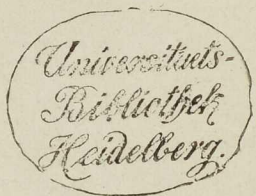 Universitaets-
Bibliothek
Heidelberg.